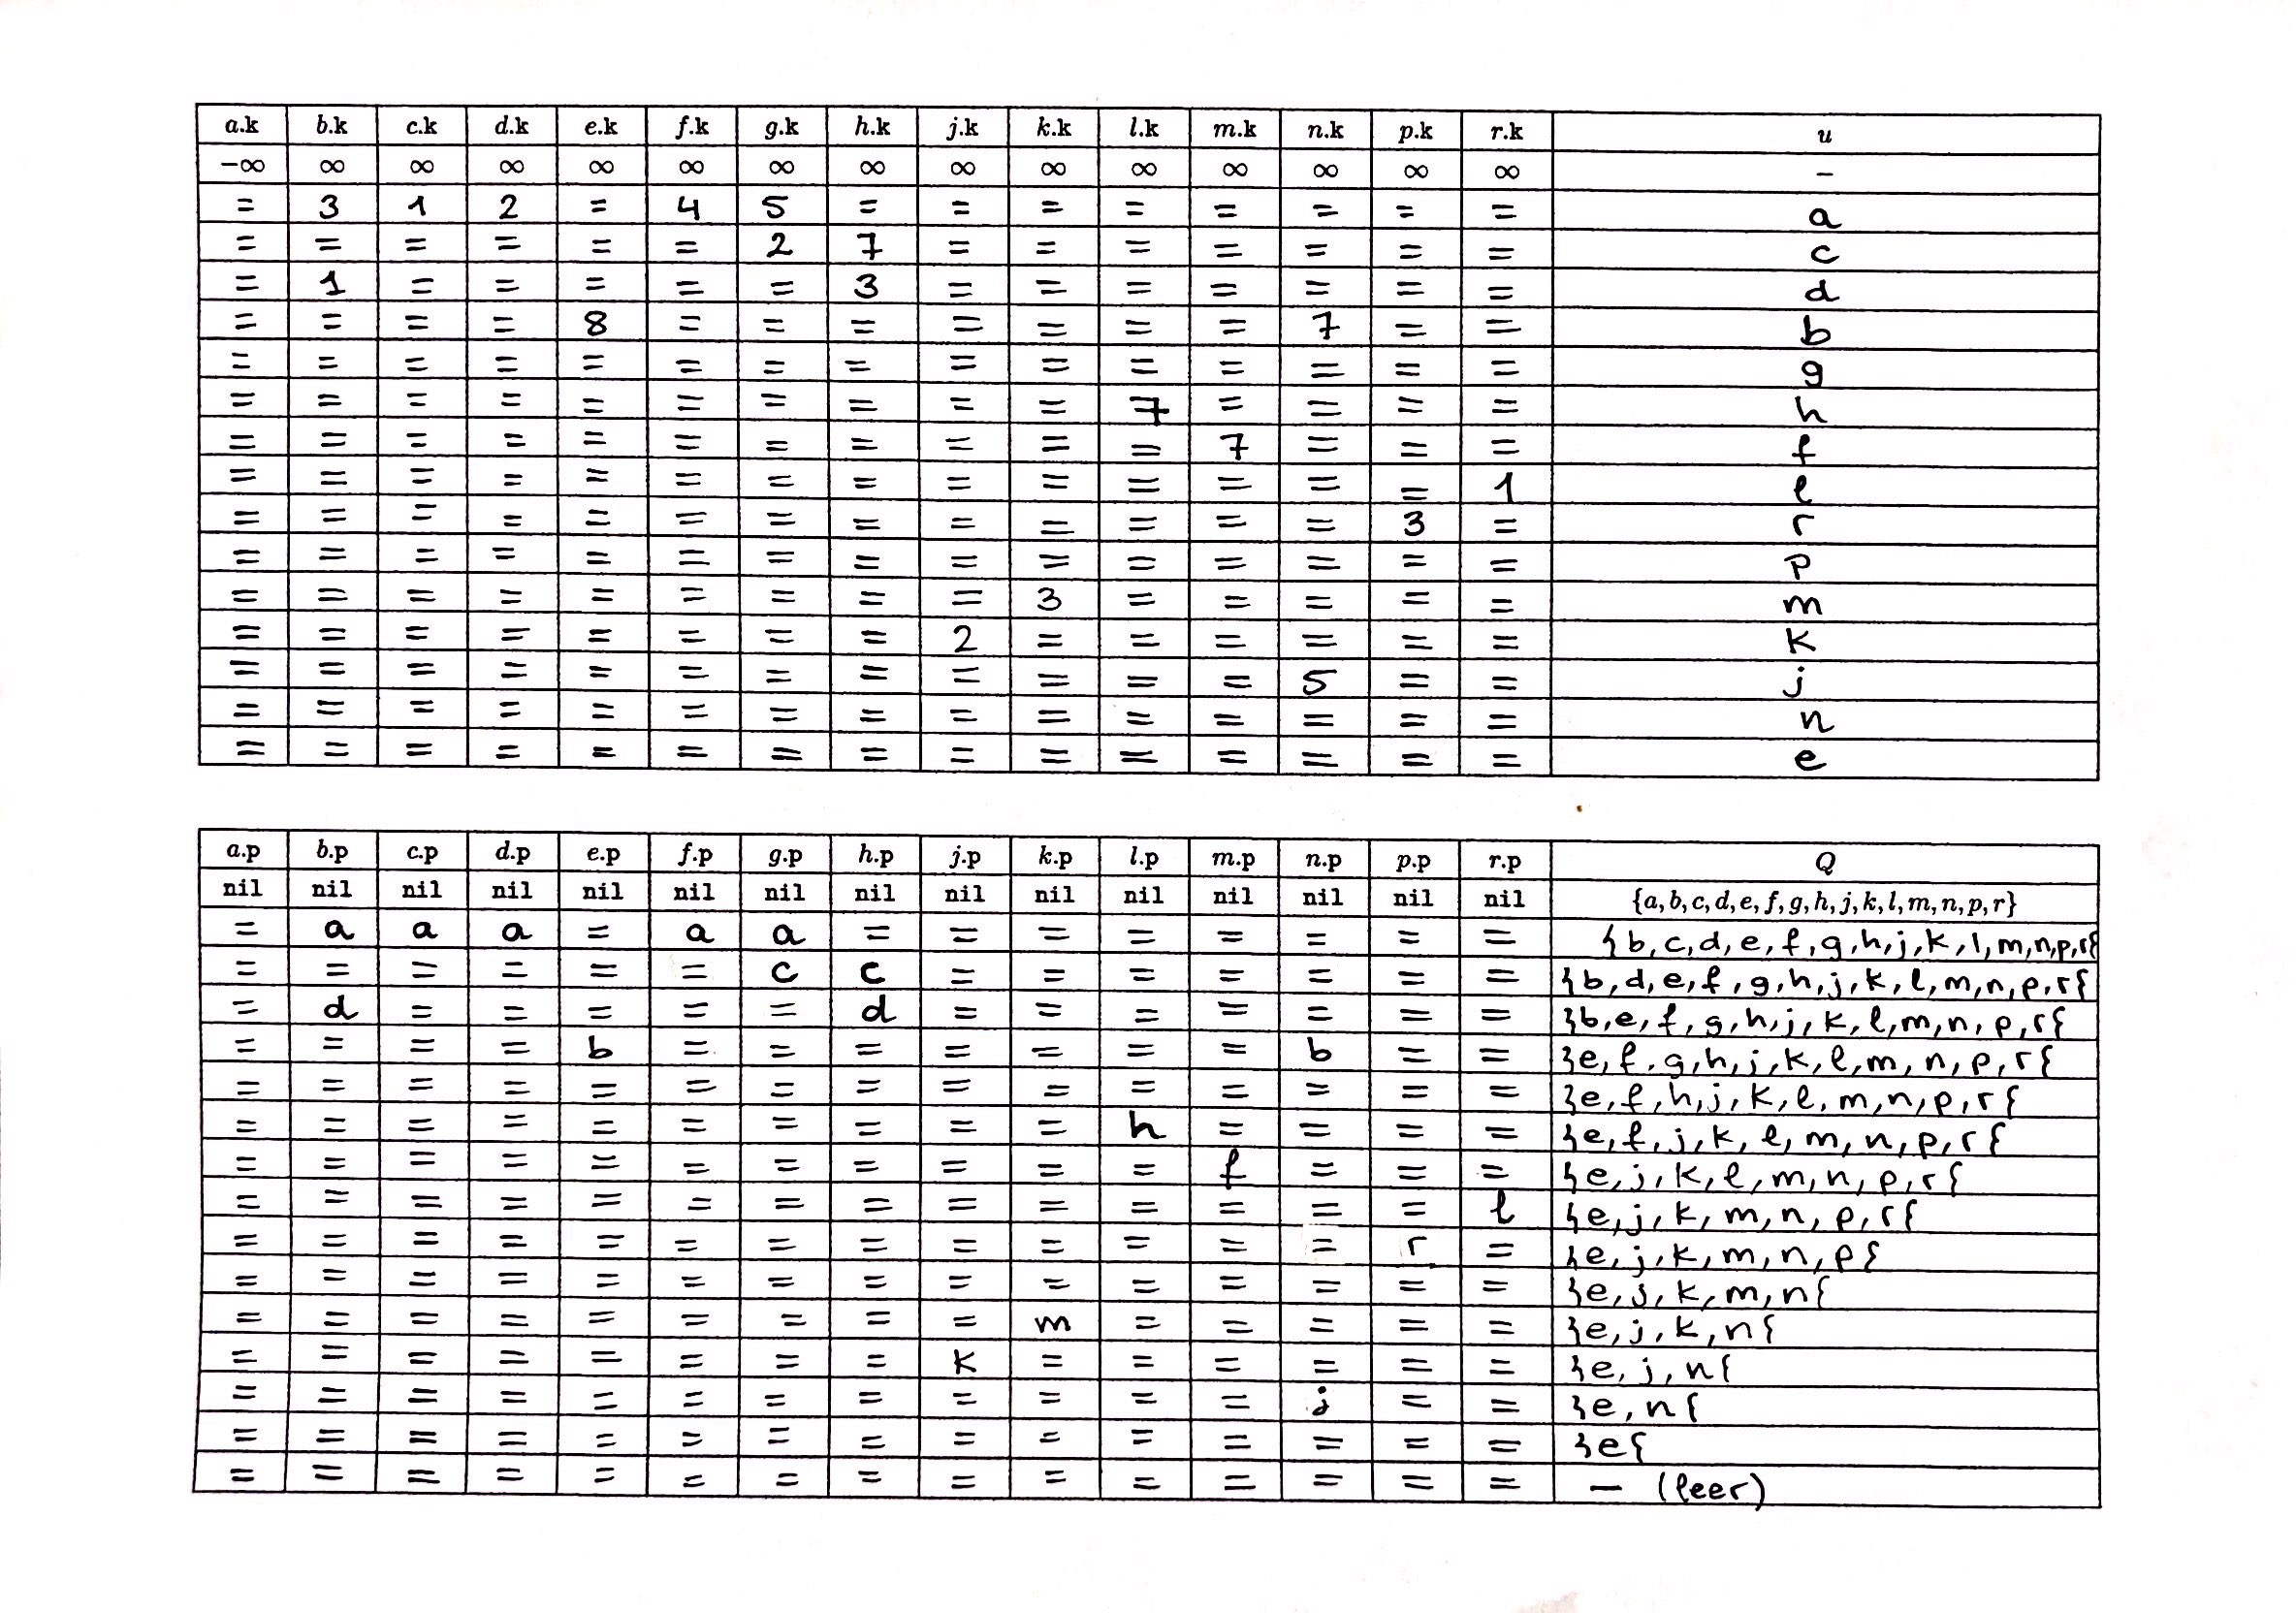 a.k b.k c.k d.k e.k f.k g.k h.k j.k k.k l.k m.k n.k p.k r.k u
−∞ ∞ ∞ ∞ ∞ ∞ ∞ ∞ ∞ ∞ ∞ ∞ ∞ ∞ ∞ −
= 3 1 2 = 4 5 = = = = = = = = a
= = = = = = 2 7 = = = = = = = c
= 1 = = = = = 3 = = = = = = = d
= = = = 8 = = = = = = = 7 = = b
= = = = = = = = = = = = = = = g
= = = = = = = = = = 7 = = = = h
= = = = = = = = = = = 7 = = = f
= = = = = = = = = = = = = = 1 l
= = = = = = = = = = = = = 3 = r
= = = = = = = = = = = = = = = p
= = = = = = = = = 3 = = = = = m
= = = = = = = = 2 = = = = = = k
= = = = = = = = = = = = 5 = = j
= = = = = = = = = = = = = = = n
= = = = = = = = = = = = = = = e
a.p b.p c.p d.p e.p f.p g.p h.p j.p k.p l.p m.p n.p p.p r.p Q
nil nil nil nil nil nil nil nil nil nil nil nil nil nil nil {a,b,c,d,e,f,g,h,j,k,l,m,n,p,r}
= a a a = a a = = = = = = = = {b,c,d,e,f,g,h,j,k,l,m,n,p,r{
= = = = = = c c = = = = = = = }b,d,e,f,g,h,j,k,l,m,n,p,r{
= d = = = = = d = = = = = = = }b,e,f,g,h,j,k,l,m,n,p,r{
= = = = b = = = = = = = b = = }e,f,g,h,j,k,l,m,n,p,r{
= = = = = = = = = = = = = = = }e,f,h,j,k,l,m,n,p,r{
= = = = = = = = = = h = = = = }e,f,j,k,l,m,n,p,r{
= = = = = = = = = = = f = = = }e,j,k,l,m,n,p,r{
= = = = = = = = = = = = = = l }e,j,k,m,n,p,r{
= = = = = = = = = = = = = r = }e,j,k,m,n,p{
= = = = = = = = = = = = = = = }e,j,k,m,n{
= = = = = = = = = m = = = = = }e,j,k,n{
= = = = = = = = k = = = = = = }e,j,n{
= = = = = = = = = = = = j = = }e,n{
= = = = = = = = = = = = = = = }e{
= = = = = = = = = = = = = = = − (leer)